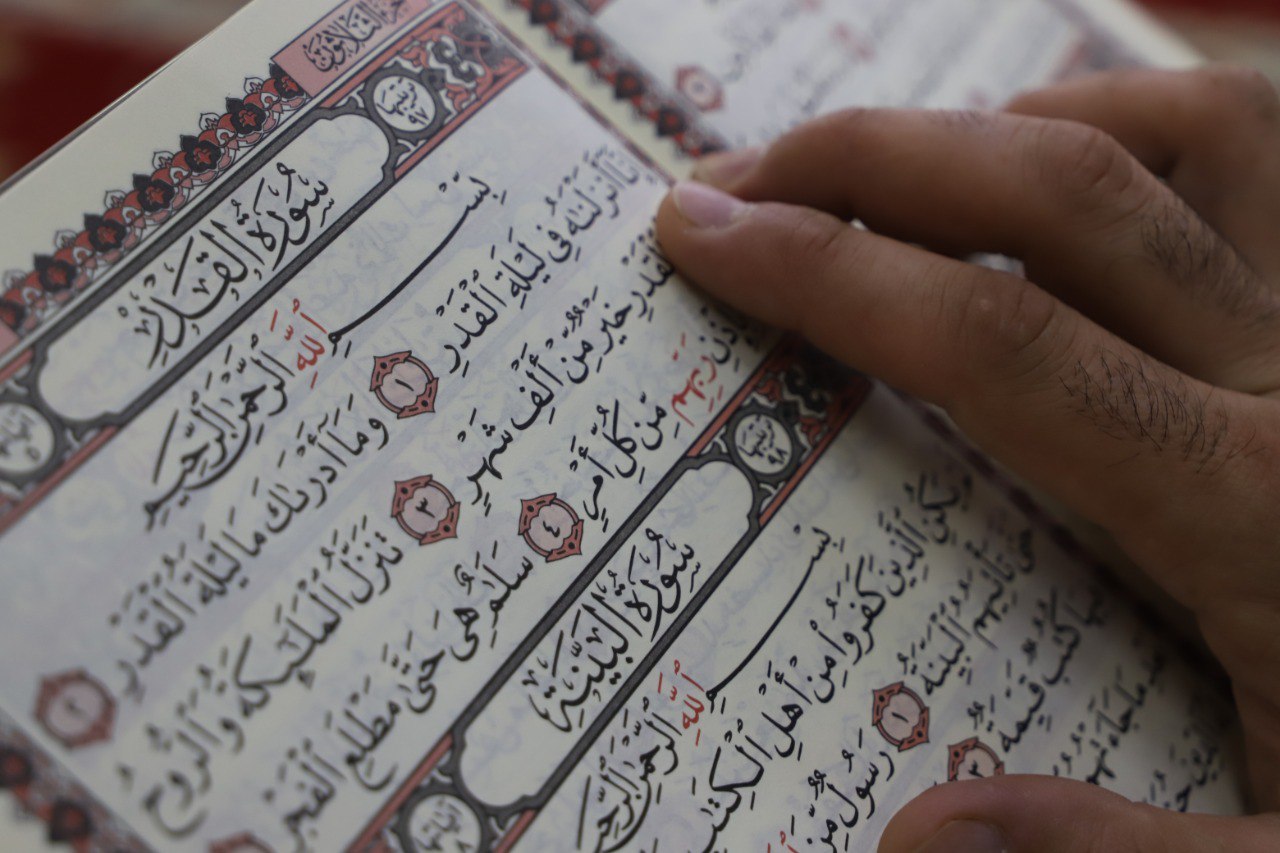 الثلاثون
ترتيبها ٩٧
سُورَةُ القَدْرِ
بِسْمِ ٱللَّهِ ٱلرَّحْمَٰنِ ٱلرَّحِيمِ
أَنزَلْنَٰهُ فِي لَيْلَةِ ٱلْقَدْرِ ١ وَمَآ أَدْرَىٰكَ مَا لَيْلَةُ ٱلْقَدْرِ ٢
ٱلْقَدْرِ خَيْرٌ مِّنْ أَلْفِ شَهْرٍ ٣ تَنَزَّلُ ٱلْمَلَٰٓئِكَةُ وَٱلرُّوحُ
رَبِّهِم مِّن كُلِّ أَمْرٍ ٤ سَلَٰمٌ هِىَ حَتَّىٰ مَطْلَعِ ٱلْفَجْرِ
ترتيبها ٩٨
سُورَةُ البَيِّنَةِ
بِسْمِ ٱللَّهِ ٱلرَّحْمَٰنِ ٱلرَّحِيمِ
يَكُنِ ٱلَّذِينَ كَفَرُوا۟ مِنْ أَهْلِ ٱلْكِتَٰبِ
تَأْتِيَهُمُ ٱلْبَيِّنَةُ ١ رَسُولٌ مِّنَ
كُتُبٌ قَيِّمَةٌ ٣
مَا جَآءَتْهُمُ